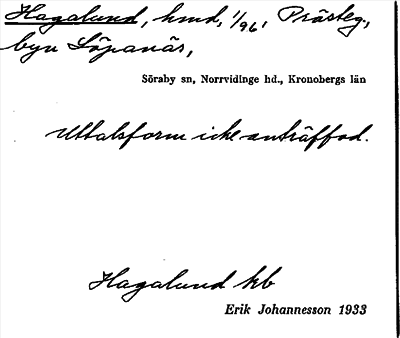 Hagalund, hmd, 1/96, Prästeg,
byn Söpanäs,
Söraby sn, Norrvidinge hd., Kronobergs län
Uttalsform icke anträffad.
Hagalund kb
Erik Johannesson 1933